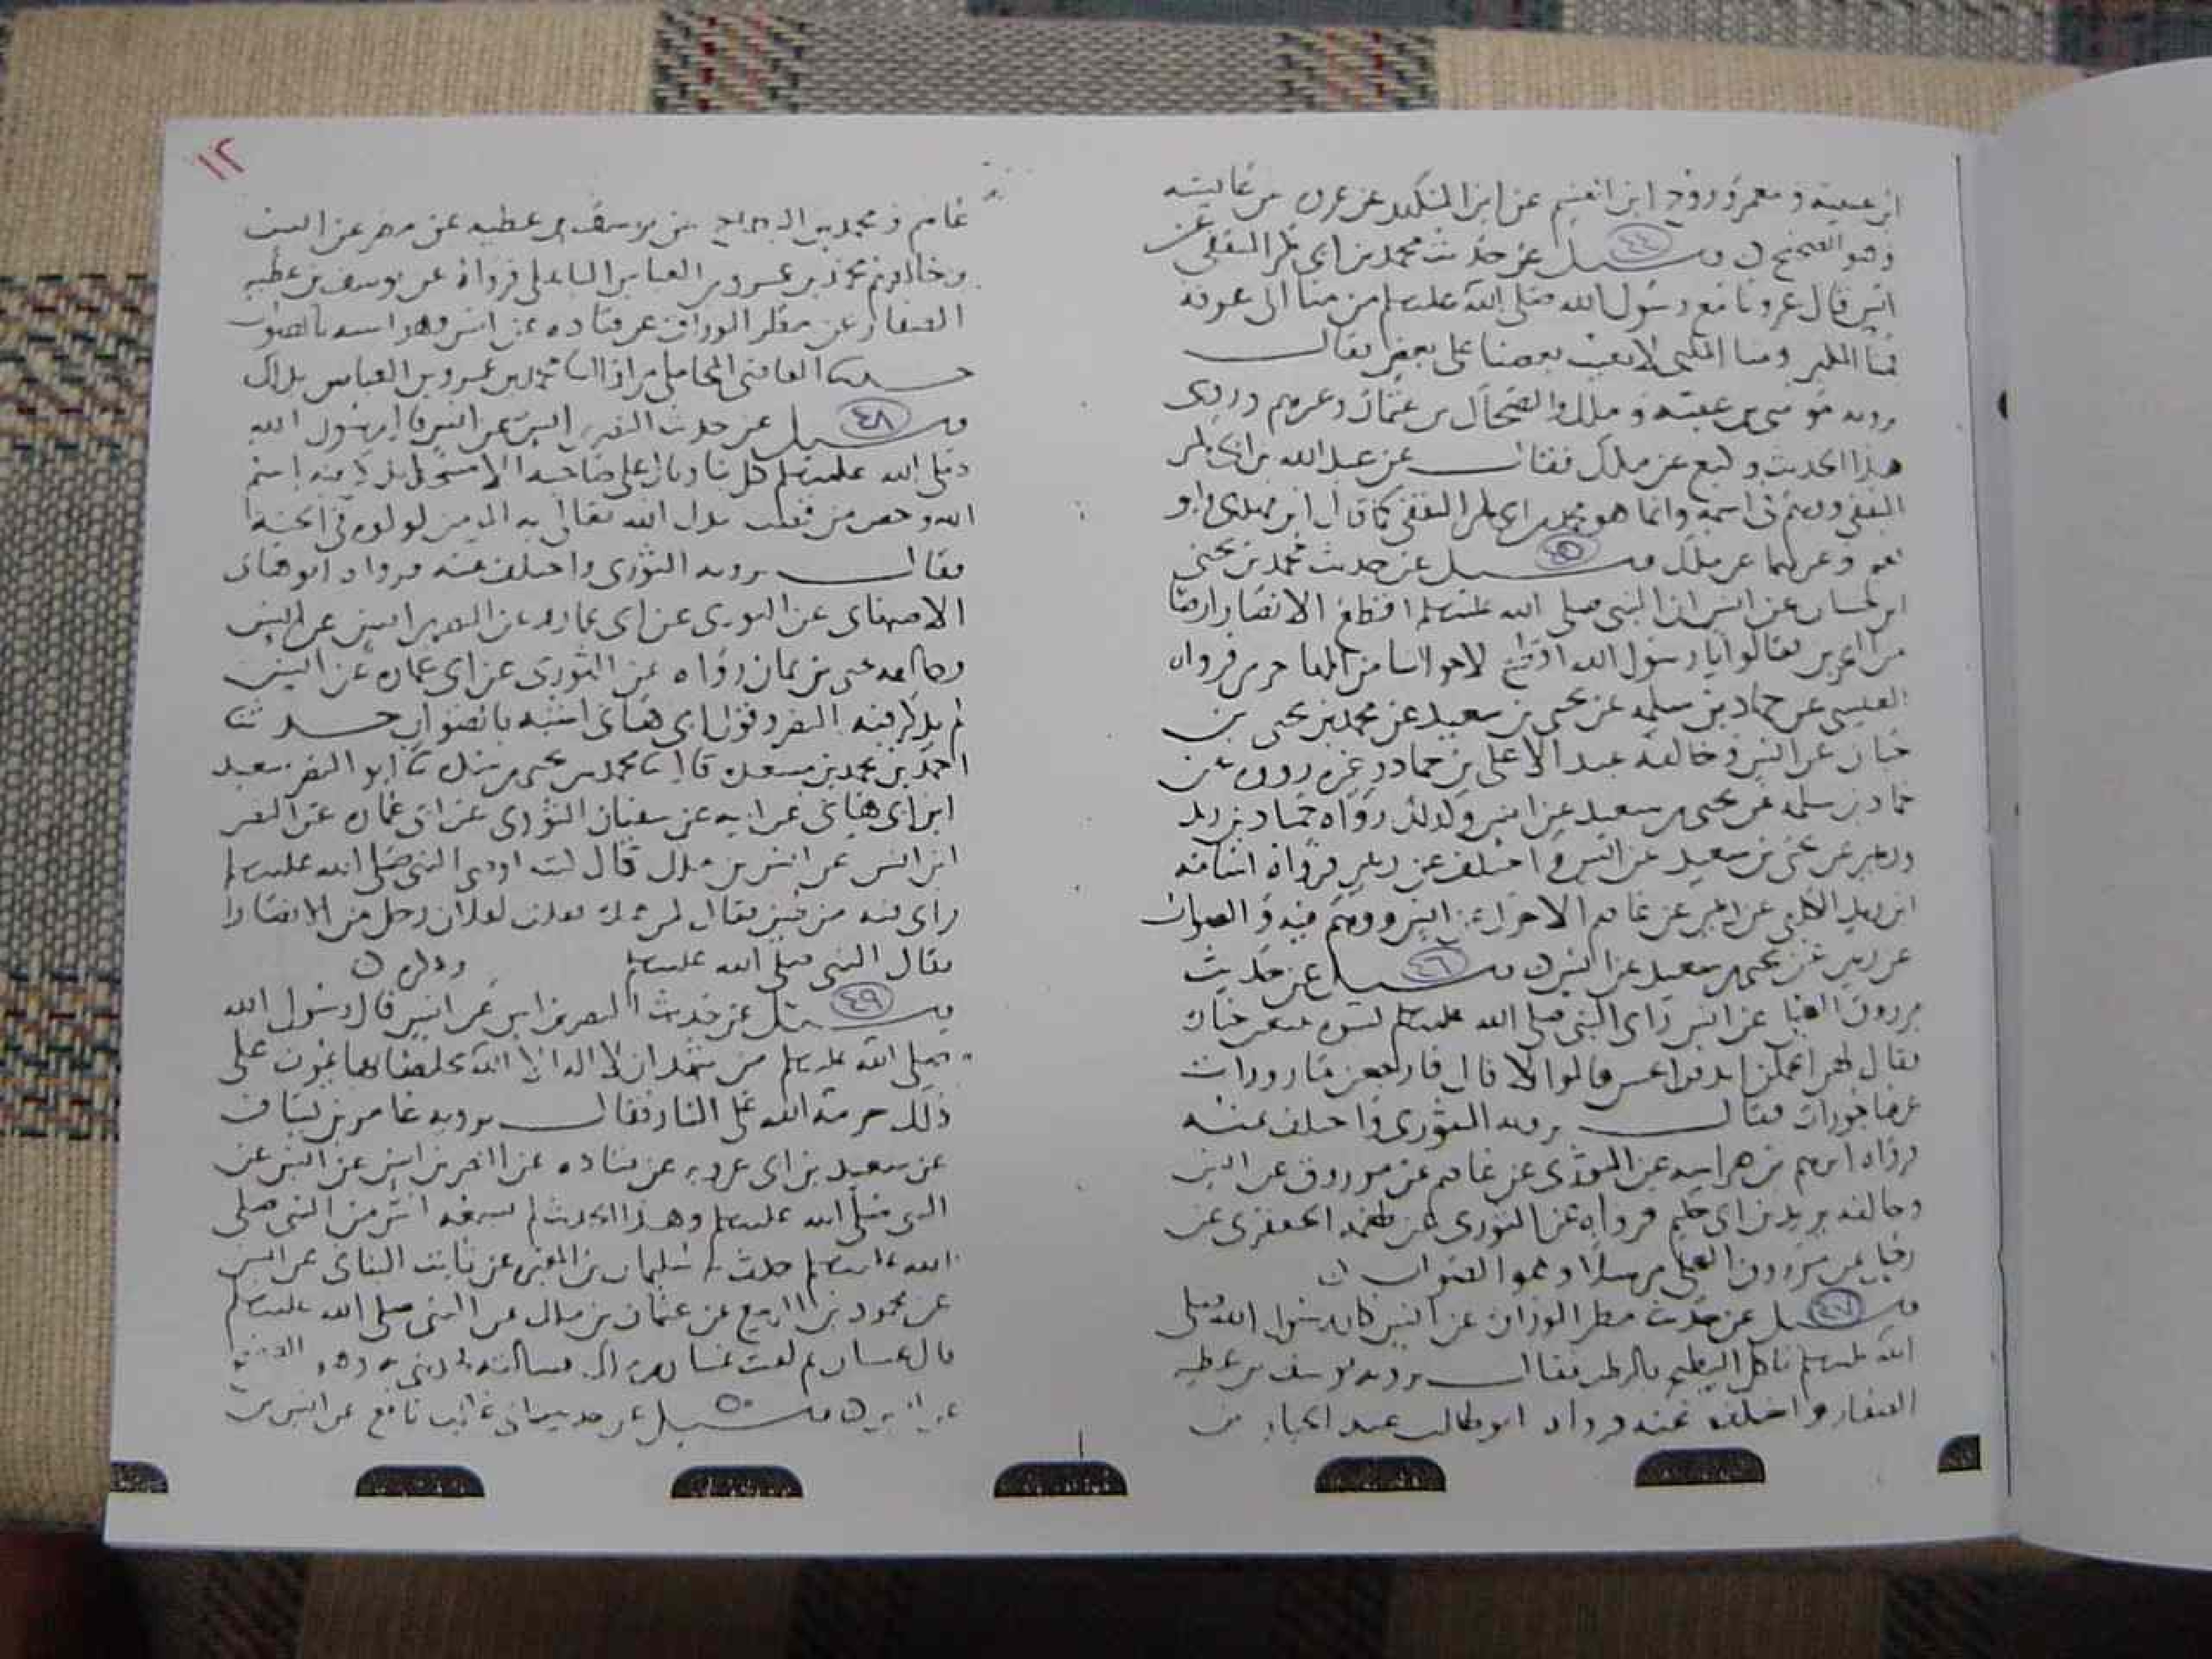 ابن عيينة ومعمر وروح ابن القاسم عن ابن المنكدر عن عروة عن عائشة
وهو الصحيح ن وسئل عن حديث محمد بن ابي بكر الثقفي عن
٤٤
انس قال غدونا مع رسول الله صلى الله عليه وسلم من منا الى عرفة
فمنا الملبي ومنا المكبر لا يعيب بعضنا على بعض فقال
يرويه موسى بن عقبة وملك والضحاك بن عثمان وغيرهم وروى
هذا الحديث وكيع عن ملك فقال عن عبد الله بن ابي بكر
الثقفي ووهم في اسمه وانما هو محمد بن ابي بكر الثقفي كما قال ابن مهدي وابو
نعيم وغيرهما عن ملك وسئل عن حديث محمد بن يحيى
٤٥
ابن حبان عن انس ان النبي صلى الله عليه وسلم اقطع الانصار ارضا
من البحرين فقالوا يا رسول الله اقطع لاخواننا من المهاجرين فرواه
العيشي عن حماد بن سلمة عن يحيى بن سعيد عن محمد بن يحيى بن
حبان عن انس وخالفه عبد الاعلى بن حماد وغيره رووه عن
حماد بن سلمة عن يحيى بن سعيد عن انس وكذلك رواه حماد بن زيد
وزهير عن يحيى بن سعيد عن انس واختلف عن زهير فرواه اسامة
ابن زيد الكلبي عن زهير عن عاصم الاحول عن انس ووهم فيه والصواب
عن زهير عن يحيى بن سعيد عن انس ن وسئل عن حديث
٤٦
مورق العجلي عن انس راى النبي صلى الله عليه وسلم نسوة
فقال لهن اتحملن اتدفن قالوا لا قال فارجعن مازورات
غير ماجورات فقال يرويه الثوري واختلف عنه
فرواه ابرهيم بن هراسة عن الثوري عن عاصم عن مورق عن انس
وخالفه يزيد بن ابي حكيم فرواه عن الثوري عن طعمة الجعفري عن
رجل عن مورق العجلي مرسلا وهو الصواب ن
٤٧
وسئل عن حديث مطر الوراق عن انس كان رسول الله صلى
الله عليه وسلم ياكل البطيخ بالرطب فقال يرويه يوسف بن عطية
الصفار واختلف عنه فرواه ابو طالب عبد الجبار بن
١٢
عاصم ومحمد بن عن يوسف بن عطية عن مطر عن انس
وخالفهم محمد بن عمرو بن العباس الباهلي فرواه عن يوسف بن عطية
الصفار عن مطر الوراق عن قتادة عن انس وهو اشبه بالصواب
حدثنا القاضي المحاملي محمد بن عمرو بن العباس بذلك
٤٨
وسئل عن حديث النضر بن انس عن انس قال رسول الله
صلى الله عليه وسلم كل بناء وبال على صاحبه الا مسجد يذكر فيه اسم
الله في الجنة
فقال يرويه الثوري واختلف عنه فرواه ابو هانئ
الاصبهاني عن الثوري عن ابي عمارة عن النضر بن انس عن انس
وخالفه يحيى بن يمان رواه عن الثوري عن ابي عمارة عن انس
لم يذكر فيه النضر وقول ابي هانئ اشبه بالصواب حدثنا
احمد بن محمد بن مسعدة قال ثنا محمد بن يحيى بن مندة ثنا ابو النضر سعيد
ابن ابي هانئ عن ابيه عن سفيان الثوري عن ابي عمارة عن النضر
ابن انس عن انس بن ملك قال النبي صلى الله عليه وسلم
راى قبة من فقال لمن لفلان رجل من الانصار
فقال النبي صلى الله عليه وسلم وذكره ن
٤٩
وسئل عن حديث النضر بن انس عن انس قال رسول الله
صلى الله عليه وسلم من شهد ان لا اله الا الله مخلصا بها يموت على
ذلك حرمه الله على النار فقال يرويه عامر بن يساف
عن سعيد بن ابي عروبة عن قتادة عن النضر بن انس عن انس عن
النبي صلى الله عليه وسلم وهذا الحديث لم يسمعه انس من النبي صلى
الله عليه وسلم حدث به سليمان بن المغيرة عن ثابت البناني عن انس
عن محمود بن الربيع عن عتبان بن ملك عن النبي صلى الله عليه وسلم
قال انس ثم لقيت عتبان فسالته فحدثني به وهو الصحيح
عن انس ن وسئل عن حديث ابي غالب نافع عن انس بن
٥٠